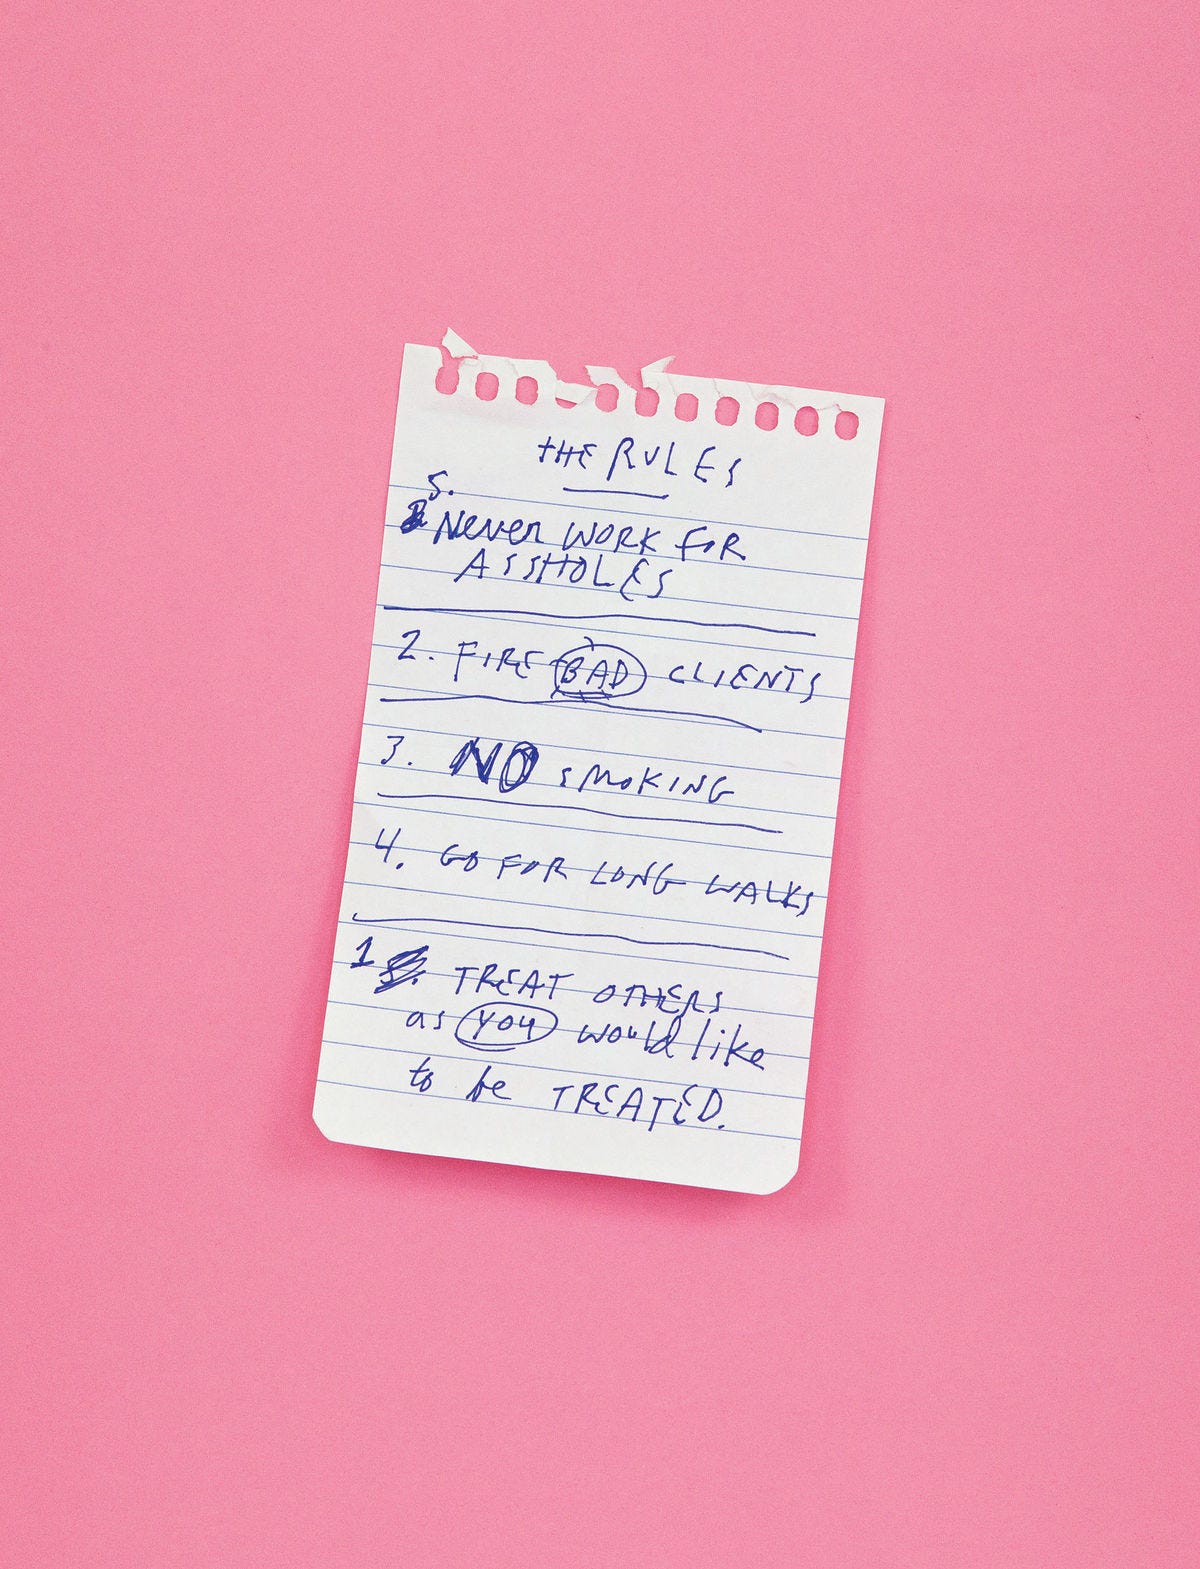 THE RULES
5.
Never WORK FOR
ASSHOLES
2. FIRE BAD CLIENTS
3. NO SMOKING
4. GO FOR LONG WALKS
1 TREAT OTHERS
as YOU would like
to be TREATED.